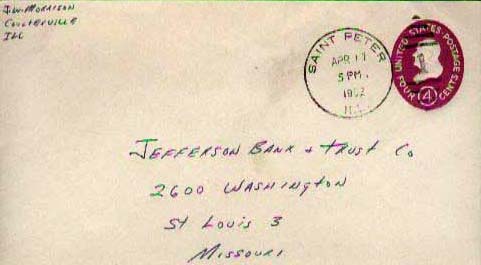 J.W. MORRISON
COULTERVILLE
ILL
SAINT PETER
APR 11
5 PM
1962
ILL.
UNITED STATES POSTAGE
4
FOUR CENTS
JEFFERSON BANK & TRUST CO
2600 WASHINGTON
ST LOUIS 3
MISSOURI